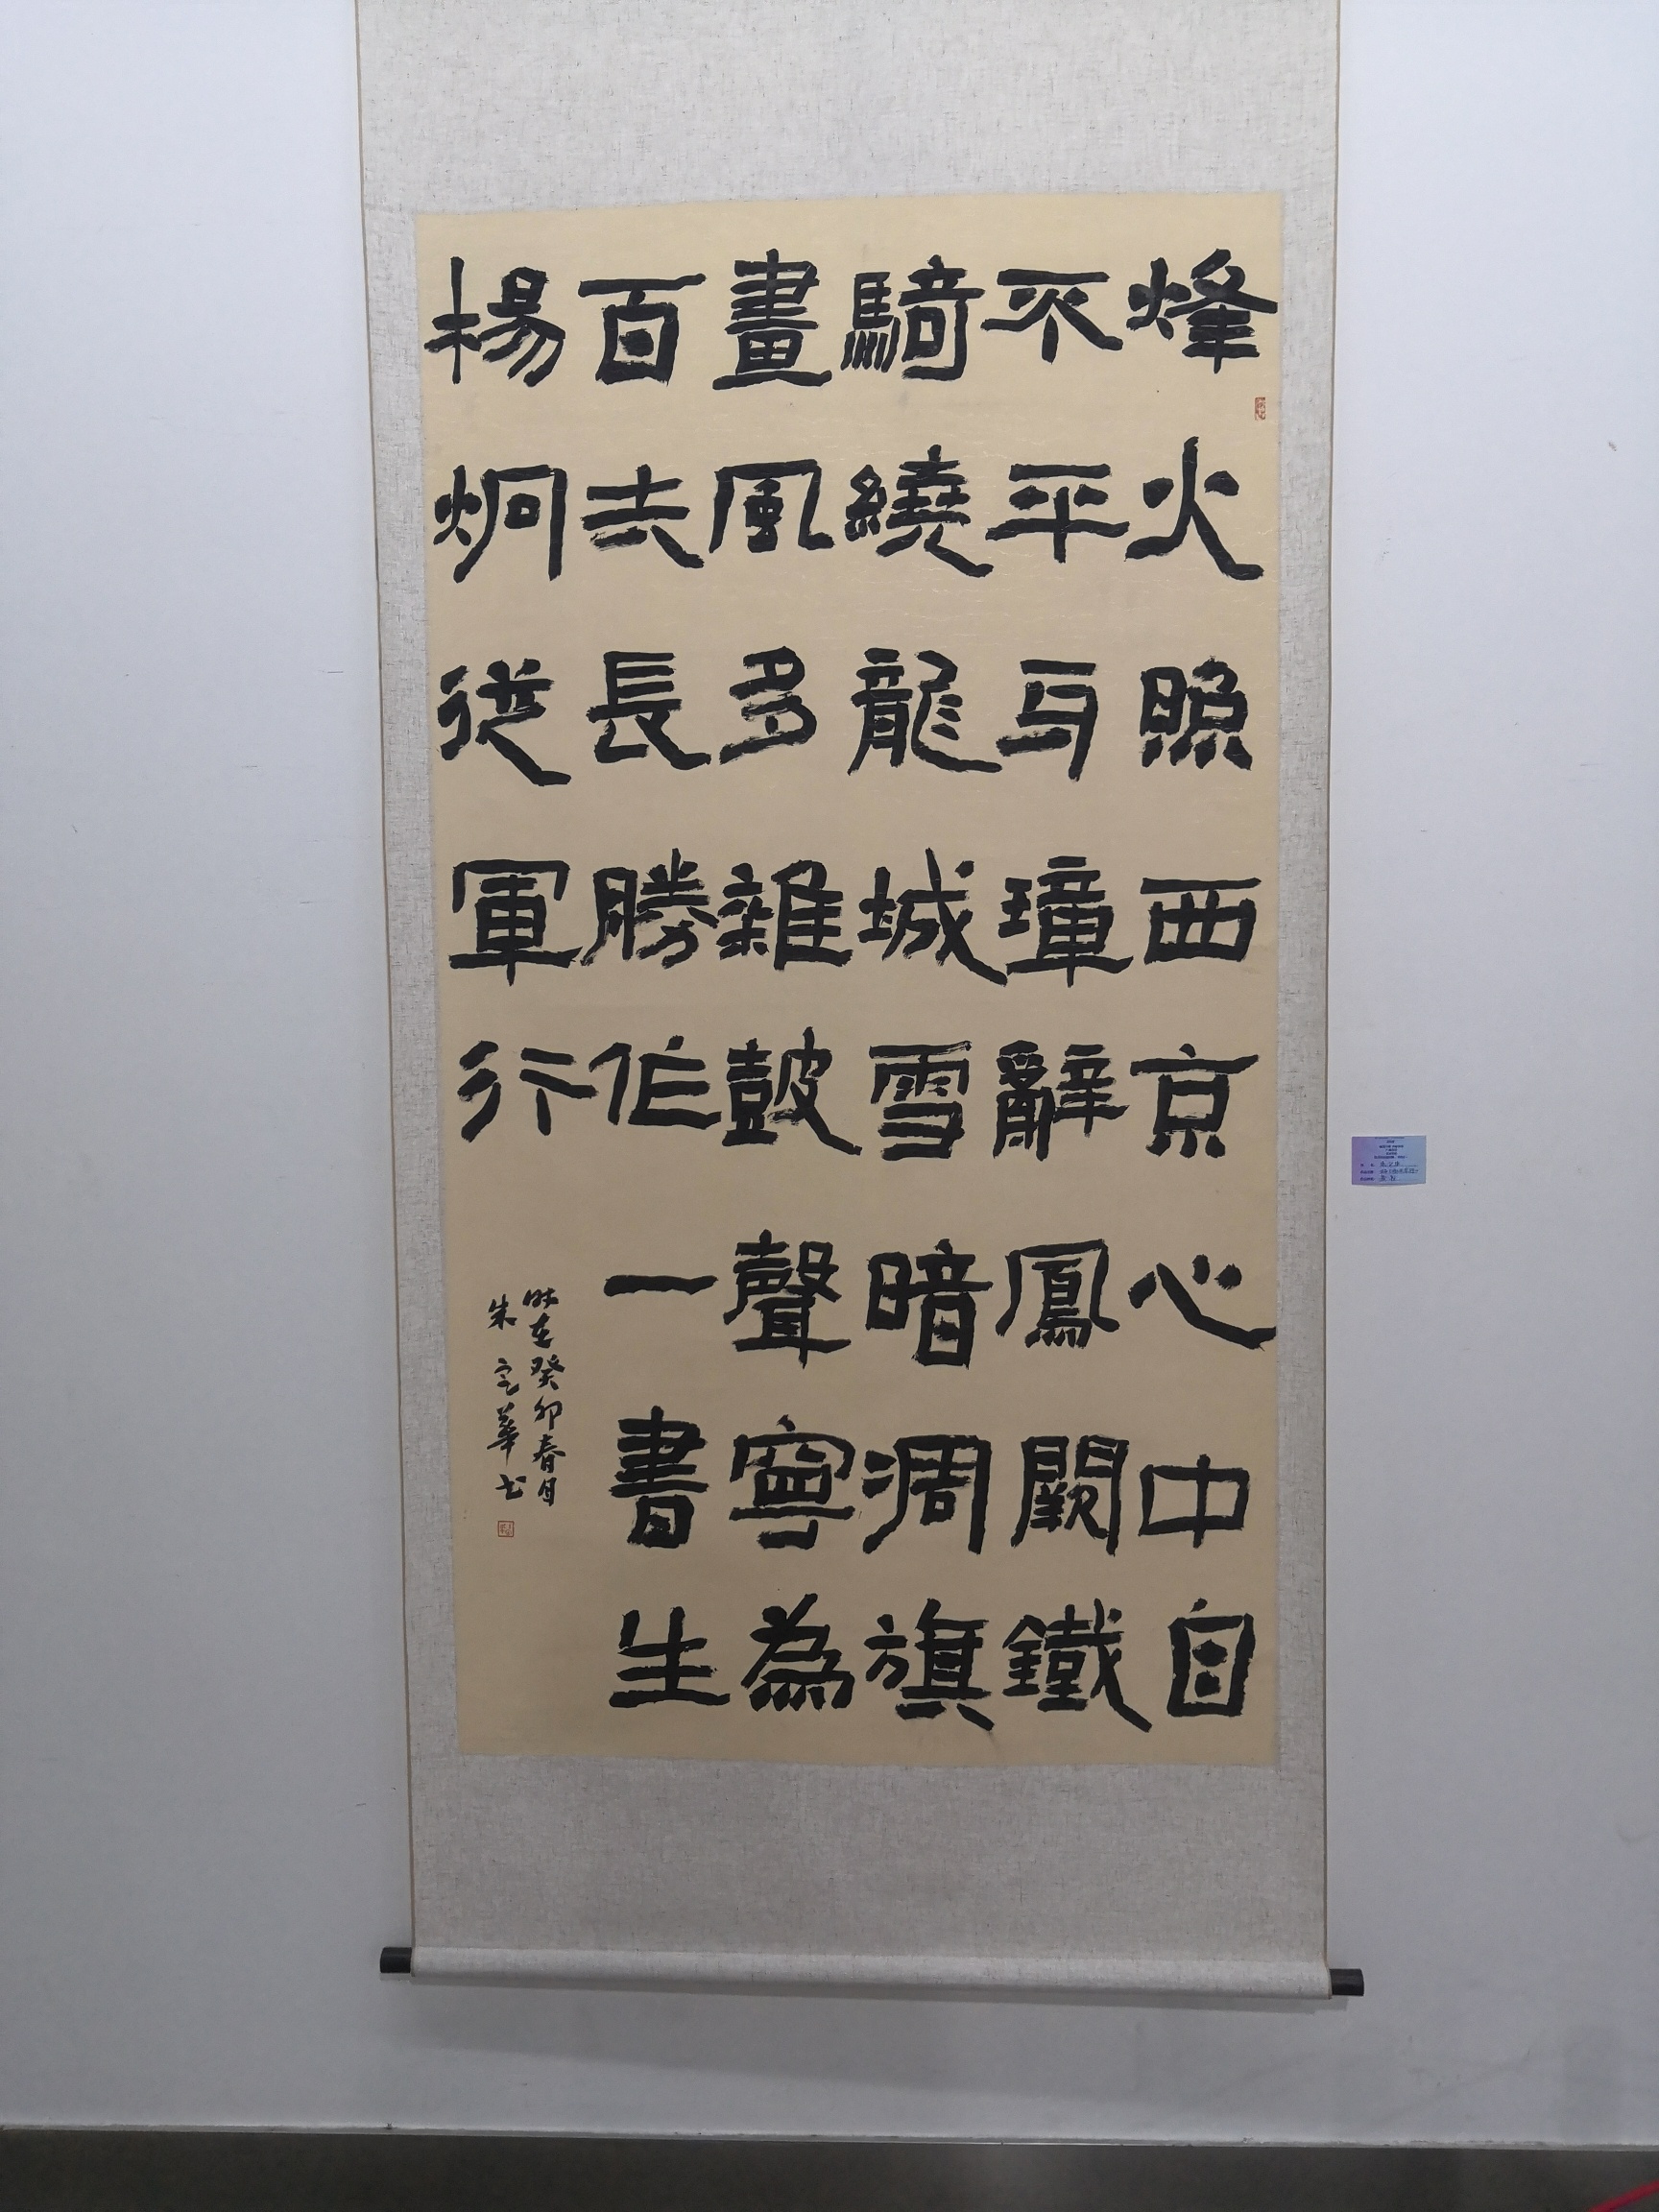 烽火照西京心中自
不平牙璋辭鳳闕鐵
騎繞龍城雪暗凋旗
畫風多雜鼓聲寧為
百夫長勝作一書生
楊炯從軍行
時在癸卯春月
朱定華书